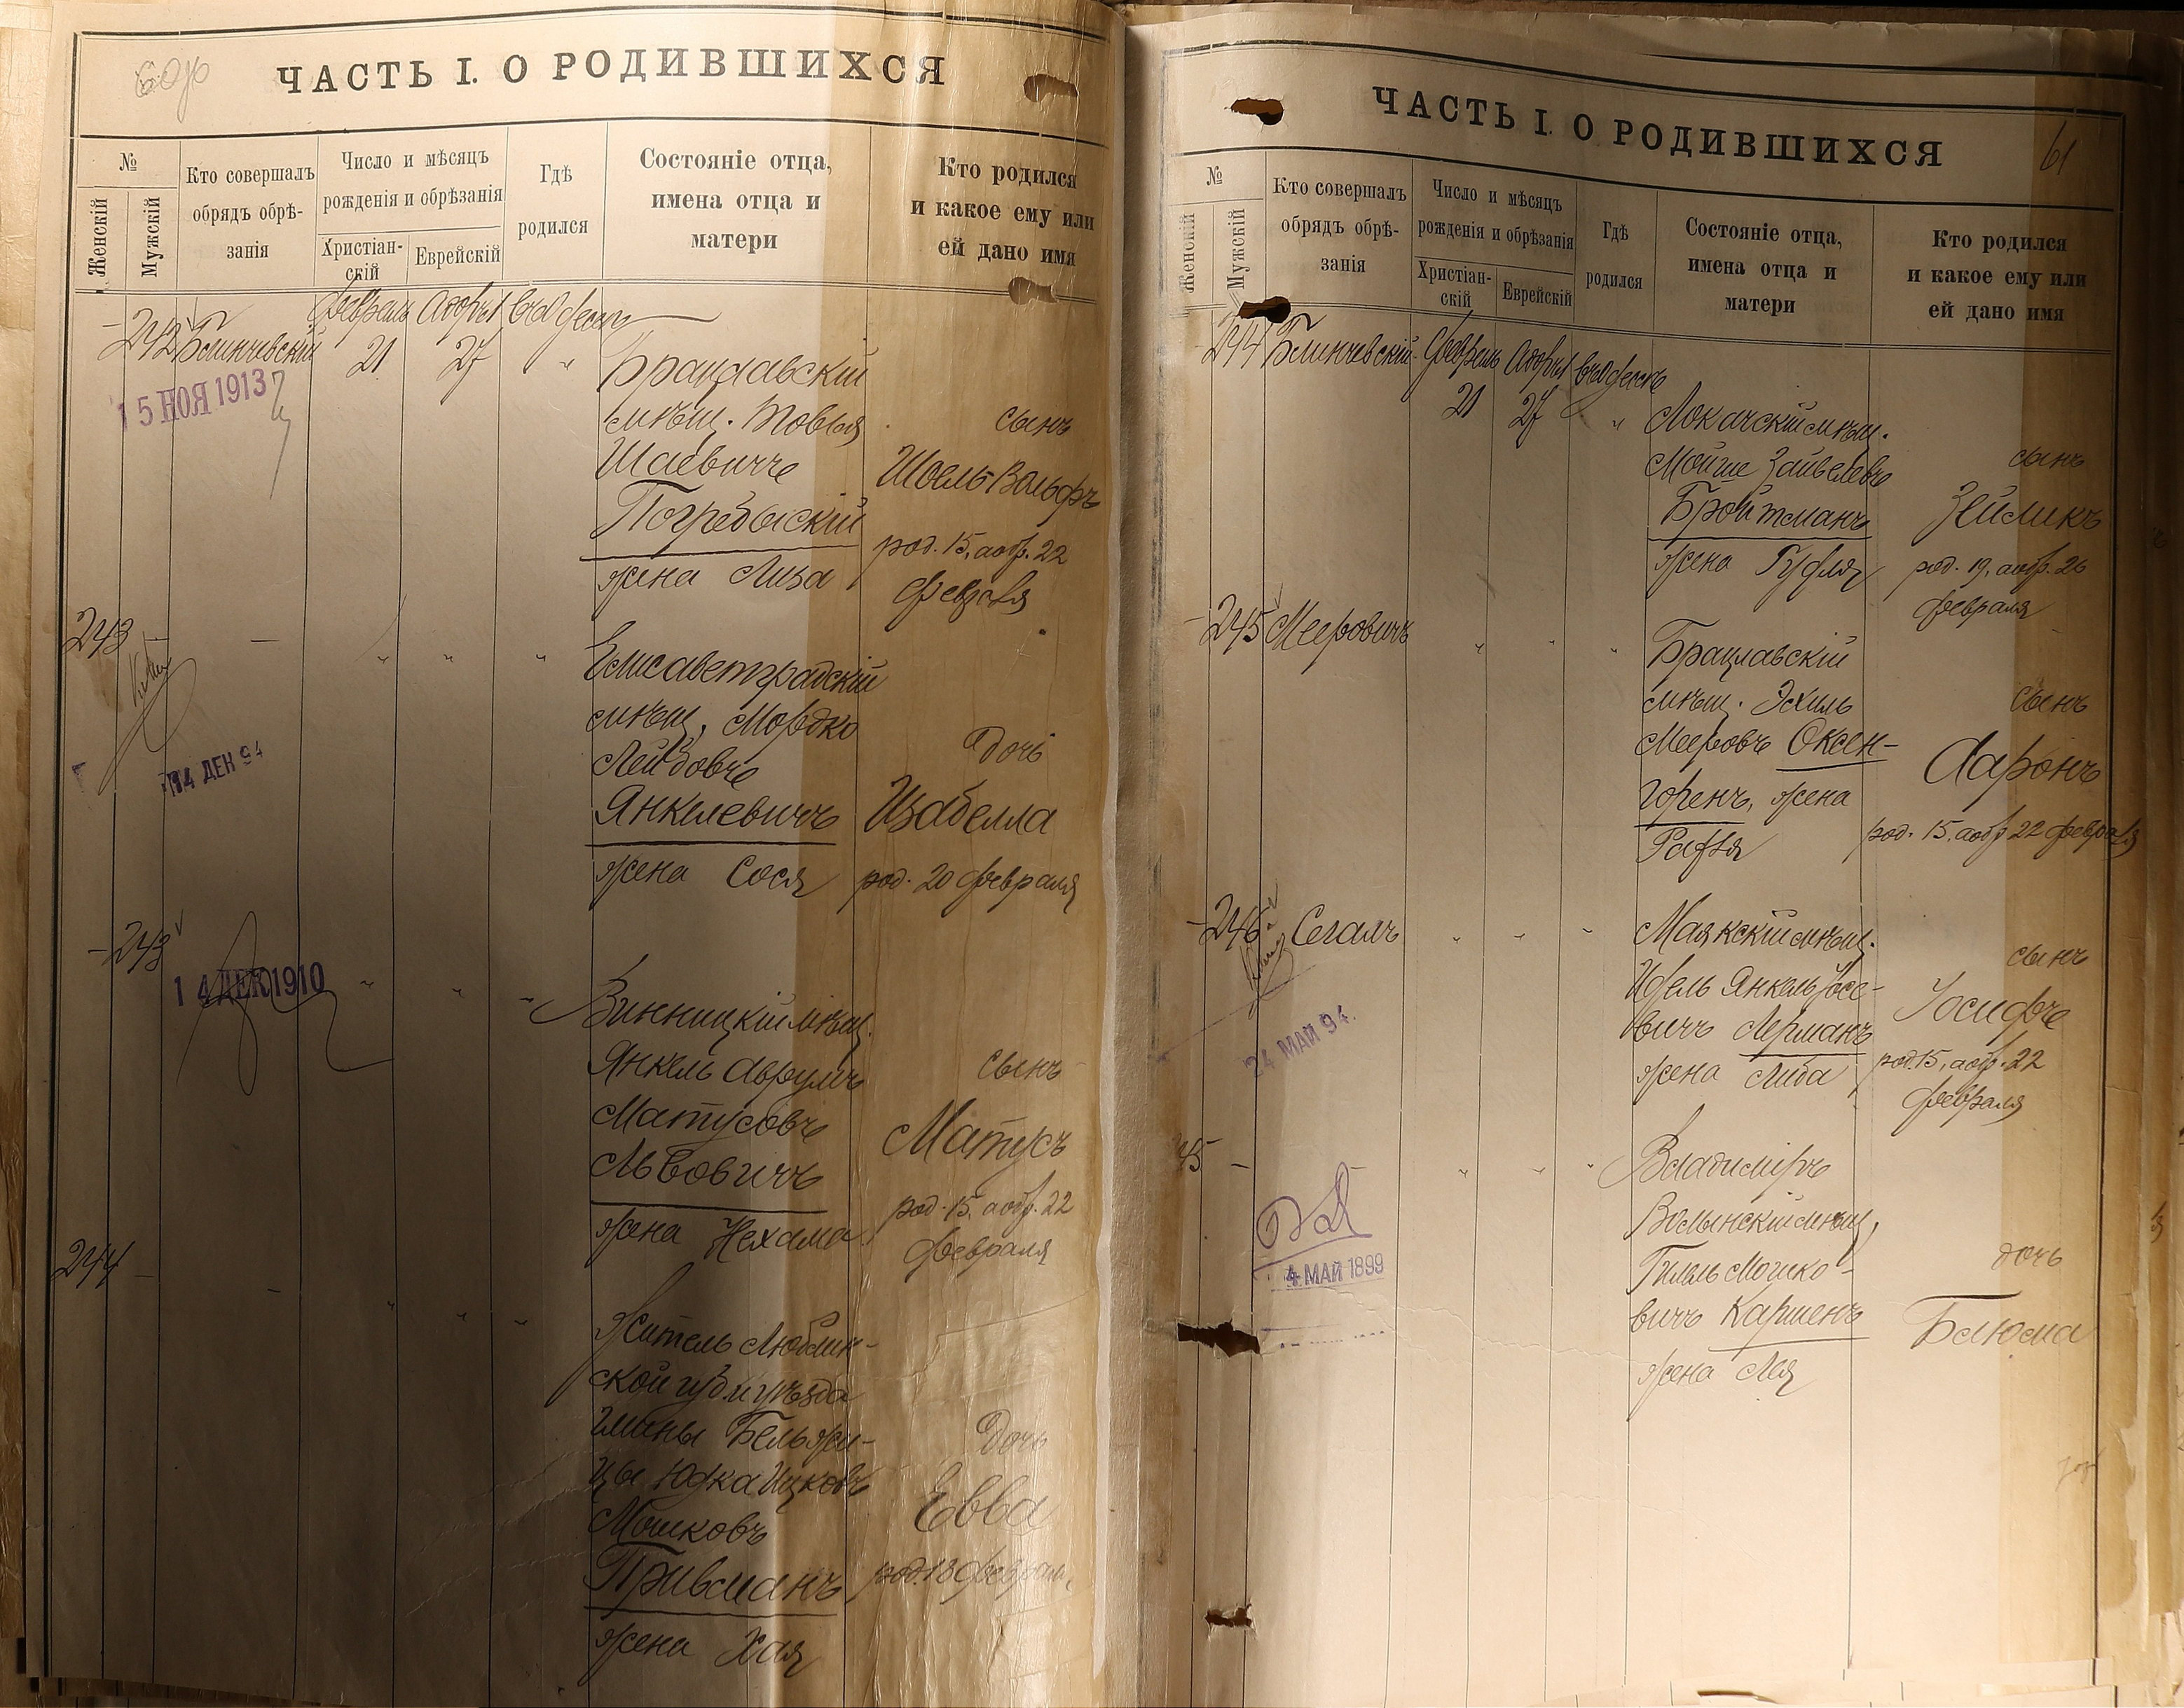 60 об
ЧАСТЬ I. О РОДИВШИХСЯ
№
Женскій
Мужскій
Кто совершалъ
обрядъ обрѣ-
занія
Число и мѣсяцъ
рожденія и обрѣзанія
Христіан-
скій
Еврейскій
Гдѣ
родился
Состояніе отца,
имена отца и
матери
Кто родился
и какое ему или
ей дано имя
Февраль Адоръ I въ Одессѣ
242 Блинчевскій 21 27 "
15 НОЯ 1913
Брацлавскій
мѣщ. Товья
Шаевичъ
Погребыскій
жена Лиза
сынъ
Шоель Вольфъ
род. 15, а обр. 22
февраля
243 — " " "
14 ДЕК 94
Елисаветградскій
мѣщ. Мордко
Лейбовъ
Янкелевичъ
жена Сося
дочь
Изабелла
род. 20 февраля
243 " " "
14 ДЕК 1910
Винницкій мѣщ.
Янкель Аврумъ
Матусовъ
Львовичъ
жена Нехама
сынъ
Матусъ
род. 15, а обр. 22
февраля
244 — — " " "
Житель Люблин-
ской губ. и уѣзда
гмины Бельжи-
цы Юдка Ицковъ
Мошковъ
Привманъ
жена Хая
дочь
Евва
род. 18 февраля
61
ЧАСТЬ I. О РОДИВШИХСЯ
№
Женскій
Мужскій
Кто совершалъ
обрядъ обрѣ-
занія
Число и мѣсяцъ
рожденія и обрѣзанія
Христіан-
скій
Еврейскій
Гдѣ
родился
Состояніе отца,
имена отца и
матери
Кто родился
и какое ему или
ей дано имя
244 Блинчевскій Февраль Адоръ I въ Одессѣ
21 27 "
Локачскій мѣщ.
Мойше Зайвелевъ
Бройтманъ
жена Руфля
сынъ
Зейликъ
род. 19, а обр. 26
февраля
245 Мееровичъ " " "
Брацлавскій
мѣщ. Эхиль
Мееровъ Оксен-
горенъ, жена
сынъ
Ааронъ
род. 15, а обр 22 февраля
246 Сегалъ " " "
24 МАЙ 94.
Маякскій мѣщ.
Идель Янкель Іосе-
вичъ Лерманъ
жена Либа
сынъ
Іосифъ
род. 15, а обр. 22
февраля
245 — " " "
4 МАЙ 1899
Владиміръ
Волынскій мѣщ,
Гилель Мошко-
вичъ Каршенъ
жена Лея
дочь
Блюма